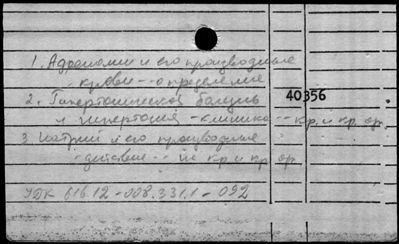 1. Адреналин и его производные
крови -- определение
2. Гипертоническая болезнь
40356
и гипертония - клиника -- кр. и кр. ор.
3 Натрий и его производные
- действие -- и кр. и кр. ор.
УДК 616.12-008.331.1-092